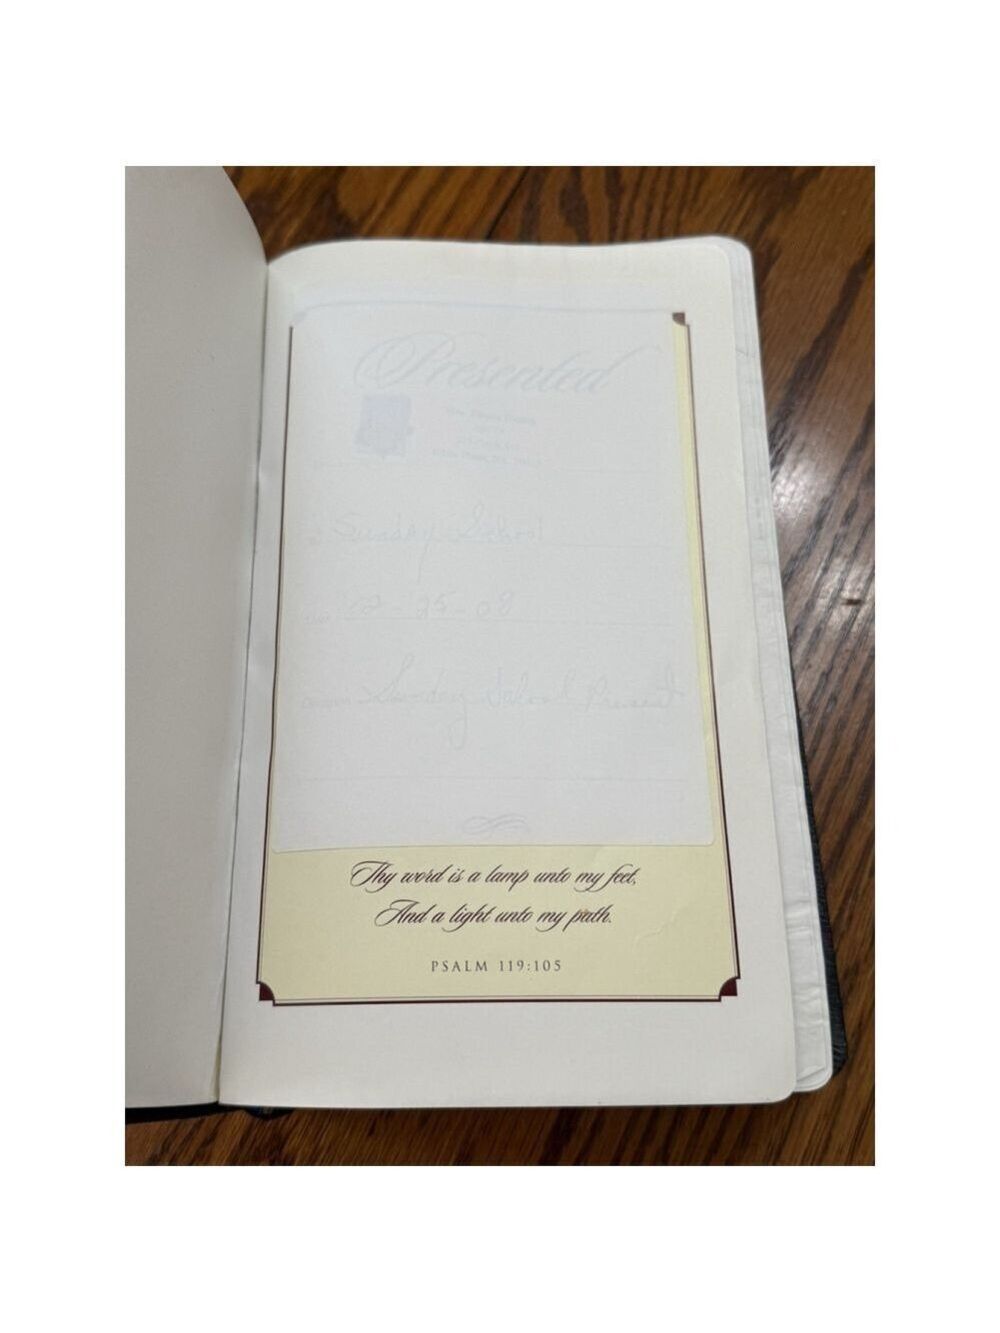 Presented
Sunday School
Date 02-25-08
Occasion Sunday School Present
Thy word is a lamp unto my feet,
And a light unto my path.
PSALM 119:105